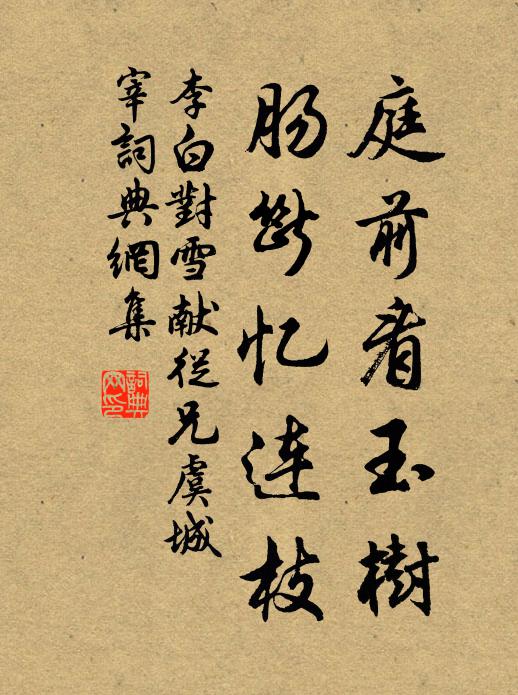 庭前看玉樹
肠斷忆連枝
李白對雪献從兄虞城
宰詞典網集
詞典網印